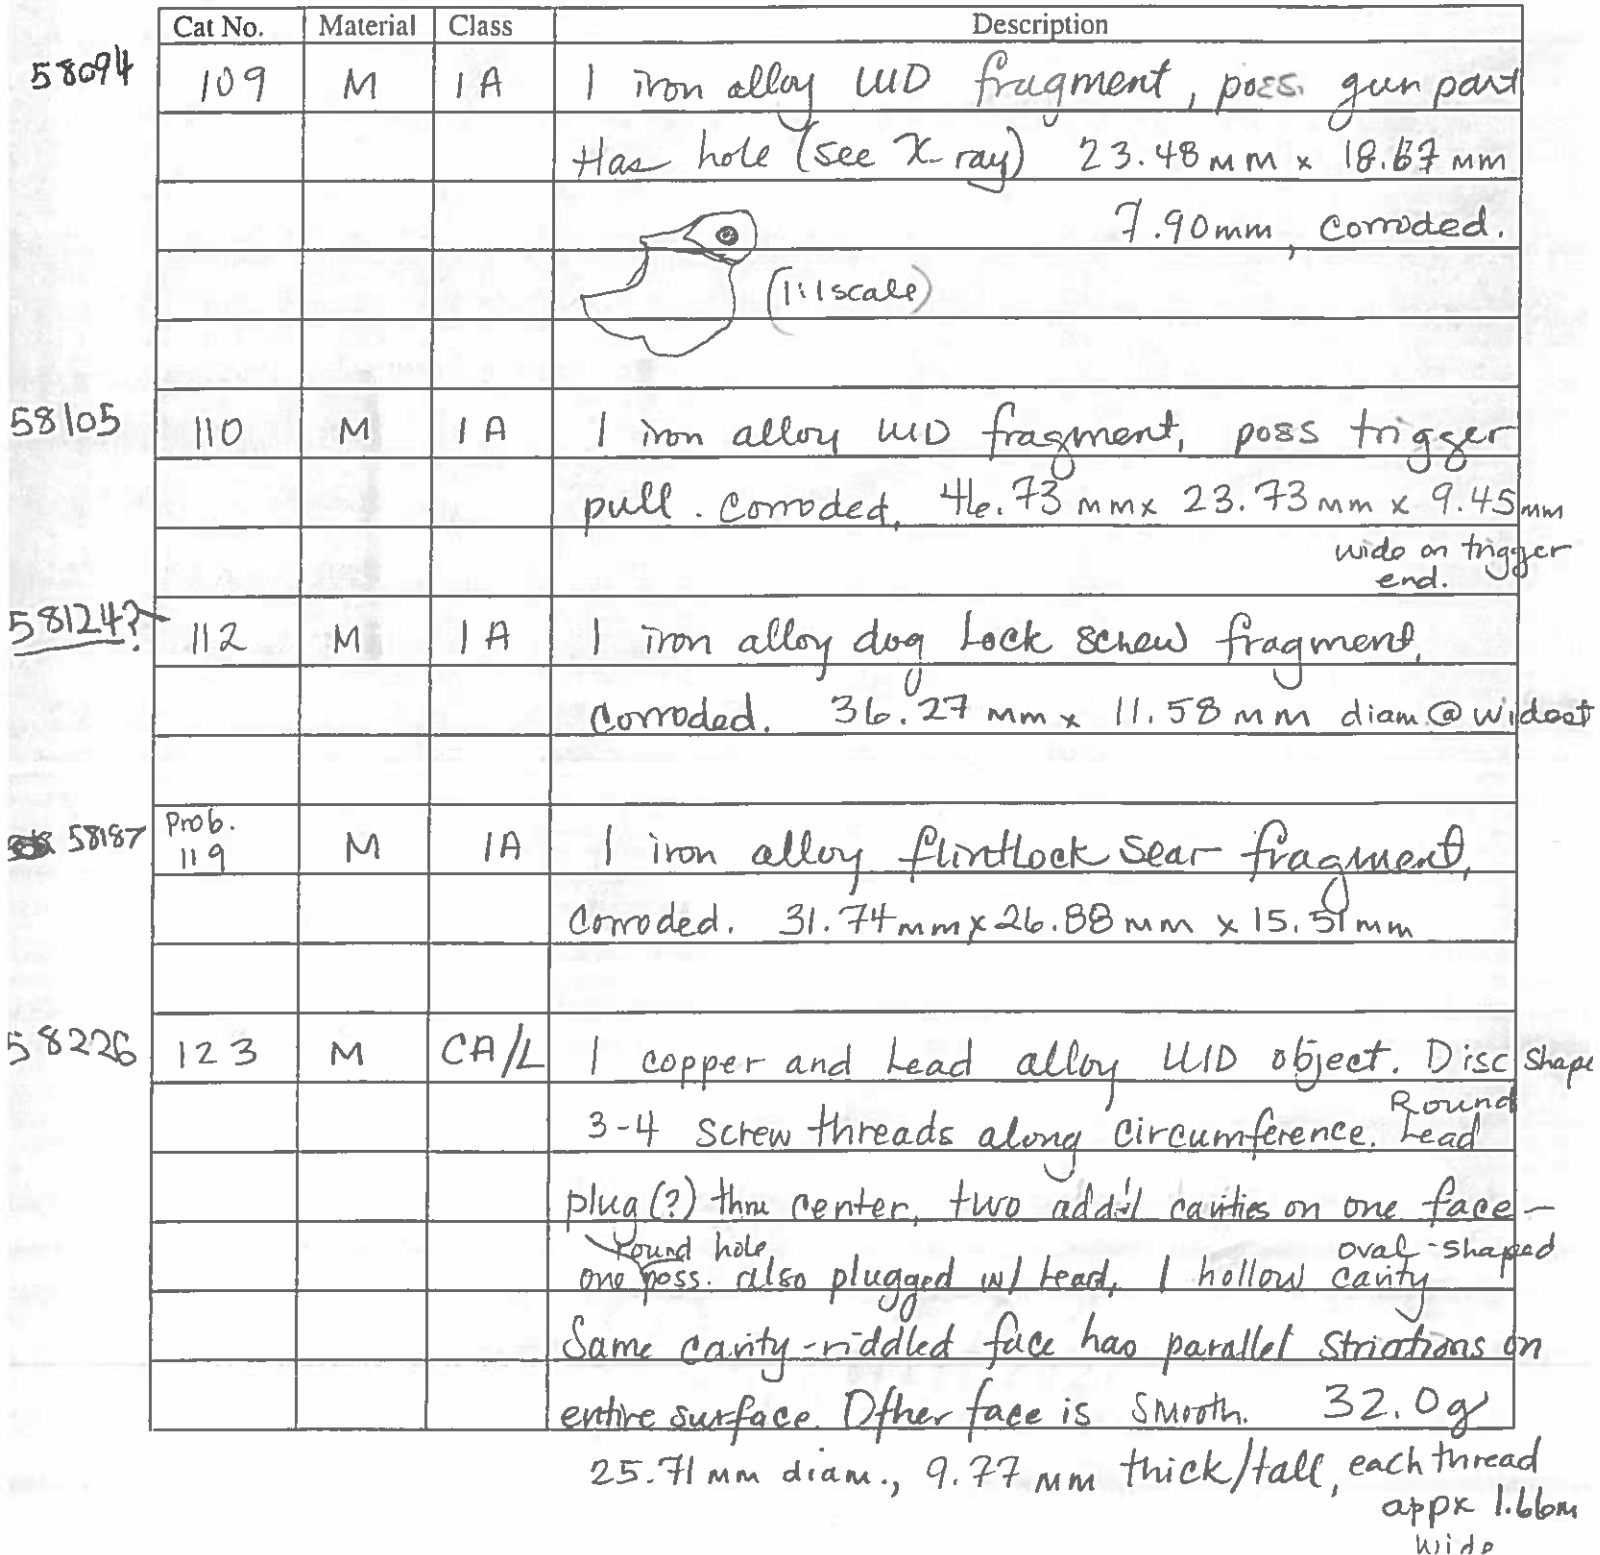 Cat No. Material Class Description
58094 109 M IA 1 iron alloy UID fragment, poss. gun part
Has hole (see X-ray) 23.48 mm x 18.67 mm
7.90mm, corroded.
(1:1 scale)
58105 110 M IA 1 iron alloy UID fragment, poss trigger
pull. Corroded, 46.73 mm x 23.73 mm x 9.45 mm
wide on trigger
end.
58124? 112 M IA 1 iron alloy dog Lock screw fragment,
Corroded. 36.27 mm x 11.58 mm diam. @ widest
Prob.
58187 119 M IA 1 iron alloy flintlock sear fragment,
Corroded. 31.74 mm x 26.88 mm x 15.51 mm
58226 123 M CA/L 1 copper and Lead alloy UID object. Disc shape
Round
3-4 screw threads along circumference. Lead
plug (?) thru center, two add'l cavities on one face —
round hole, oval-shaped
one poss. also plugged w/ Lead, 1 hollow cavity
Same cavity-riddled face has parallel striations on
entire surface. Other face is smooth. 32.0g
25.71 mm diam., 9.77 mm thick/tall, each thread
appx 1.66m
wide